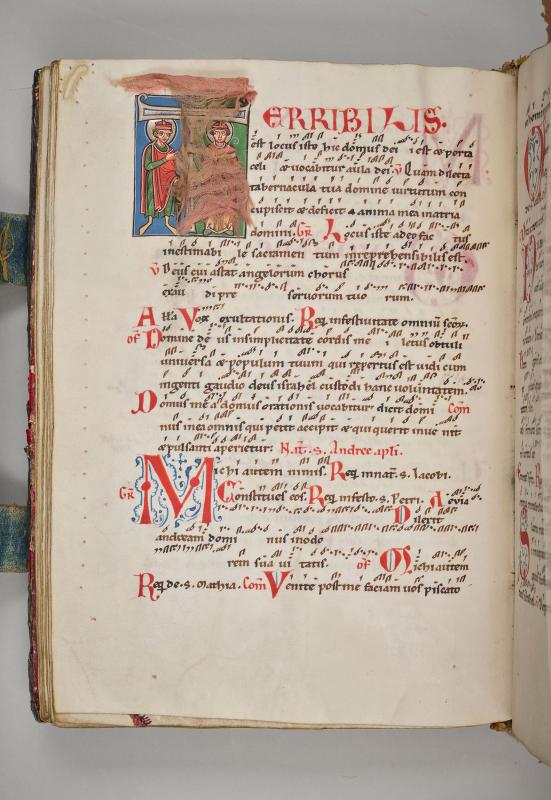 TERRIBILIS.
est locus iste hic domus dei est & porta
celi & uocabitur aula dei. V Quam dilecta
tabernacula tua domine uirtutum con
cupiscit & deficit anima mea in atria
domini. GR Locus iste a deo fac tus
inestimabi le sacramen tum inreprehensibilis est.
V Deus cui astat angelorum chorus
exau di pre seruorum tuo rum.
Alla Vox exultationis. Req in festiuitate omniū scōꝝ.
OF Domine dē us in simplicitate cordis me i letus obtuli
uniuersa & populum tuum qui repertus est uidi cum
ingenti gaudio deus israhel custodi hanc uoluntatem.
Domus mea domus orationis uocabitur dicit domi COM
nus in ea omnis qui petit accipit & qui querit inue nit
& pulsanti aperietur. S. Andree apli.
Michi autem nimis. Req S. Iacobi.
GR Constitues eos. Req in festo S. Petri. Alleuia
Dilexit
andream domi nus in odo
rem sua ui tatis. OF Michi autem
Req de S. Mathia. COM Venite post me faciam uos piscato